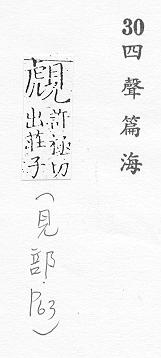 30
四聲篇海
覤
許極切
出莊子
(見部.P63)